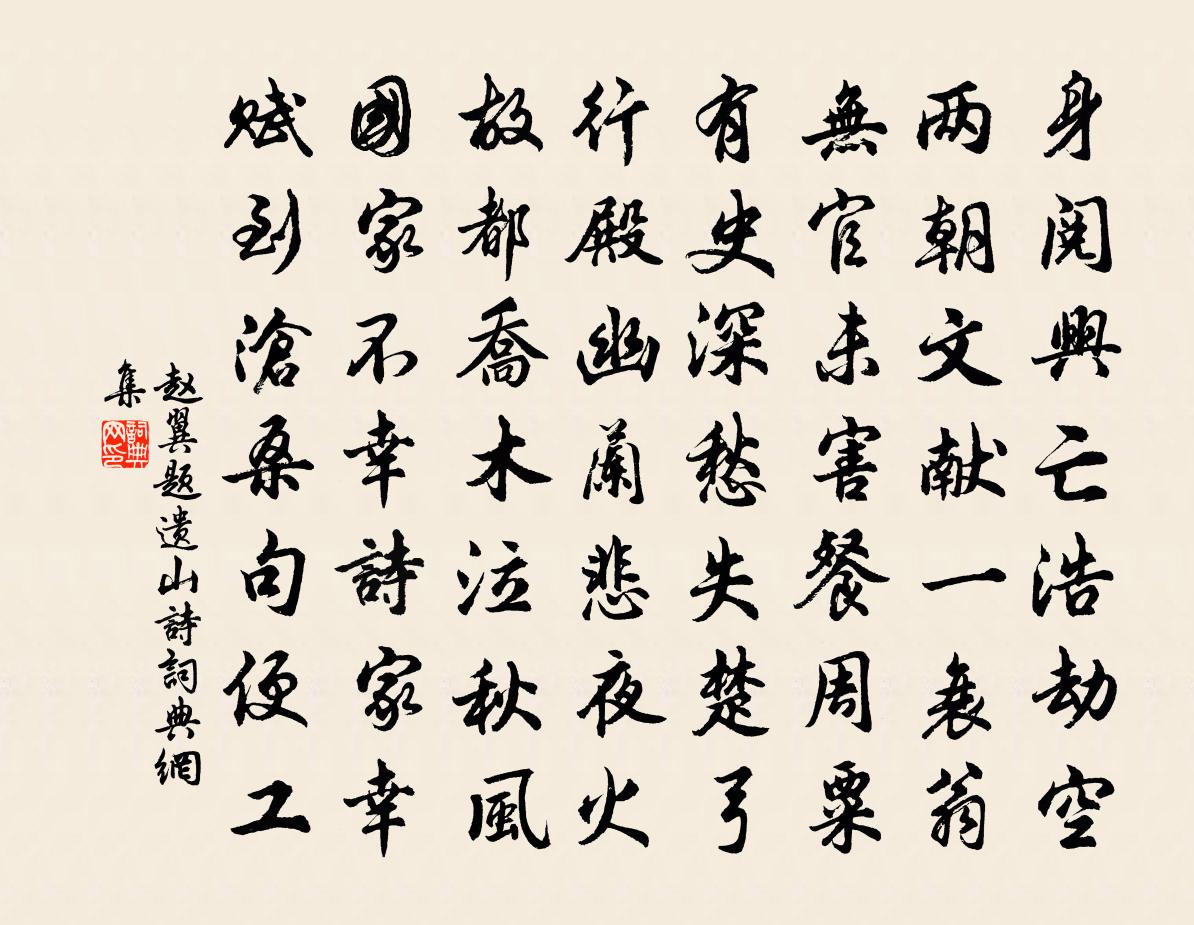 身閱興亡浩劫空
两朝文献一衰翁
無官未害餐周粟
有史深愁失楚弓
行殿幽蘭悲夜火
故都喬木泣秋風
國家不幸詩家幸
賦到滄桑句便工
赵翼题遗山詩詞典網
集
詞典
网印